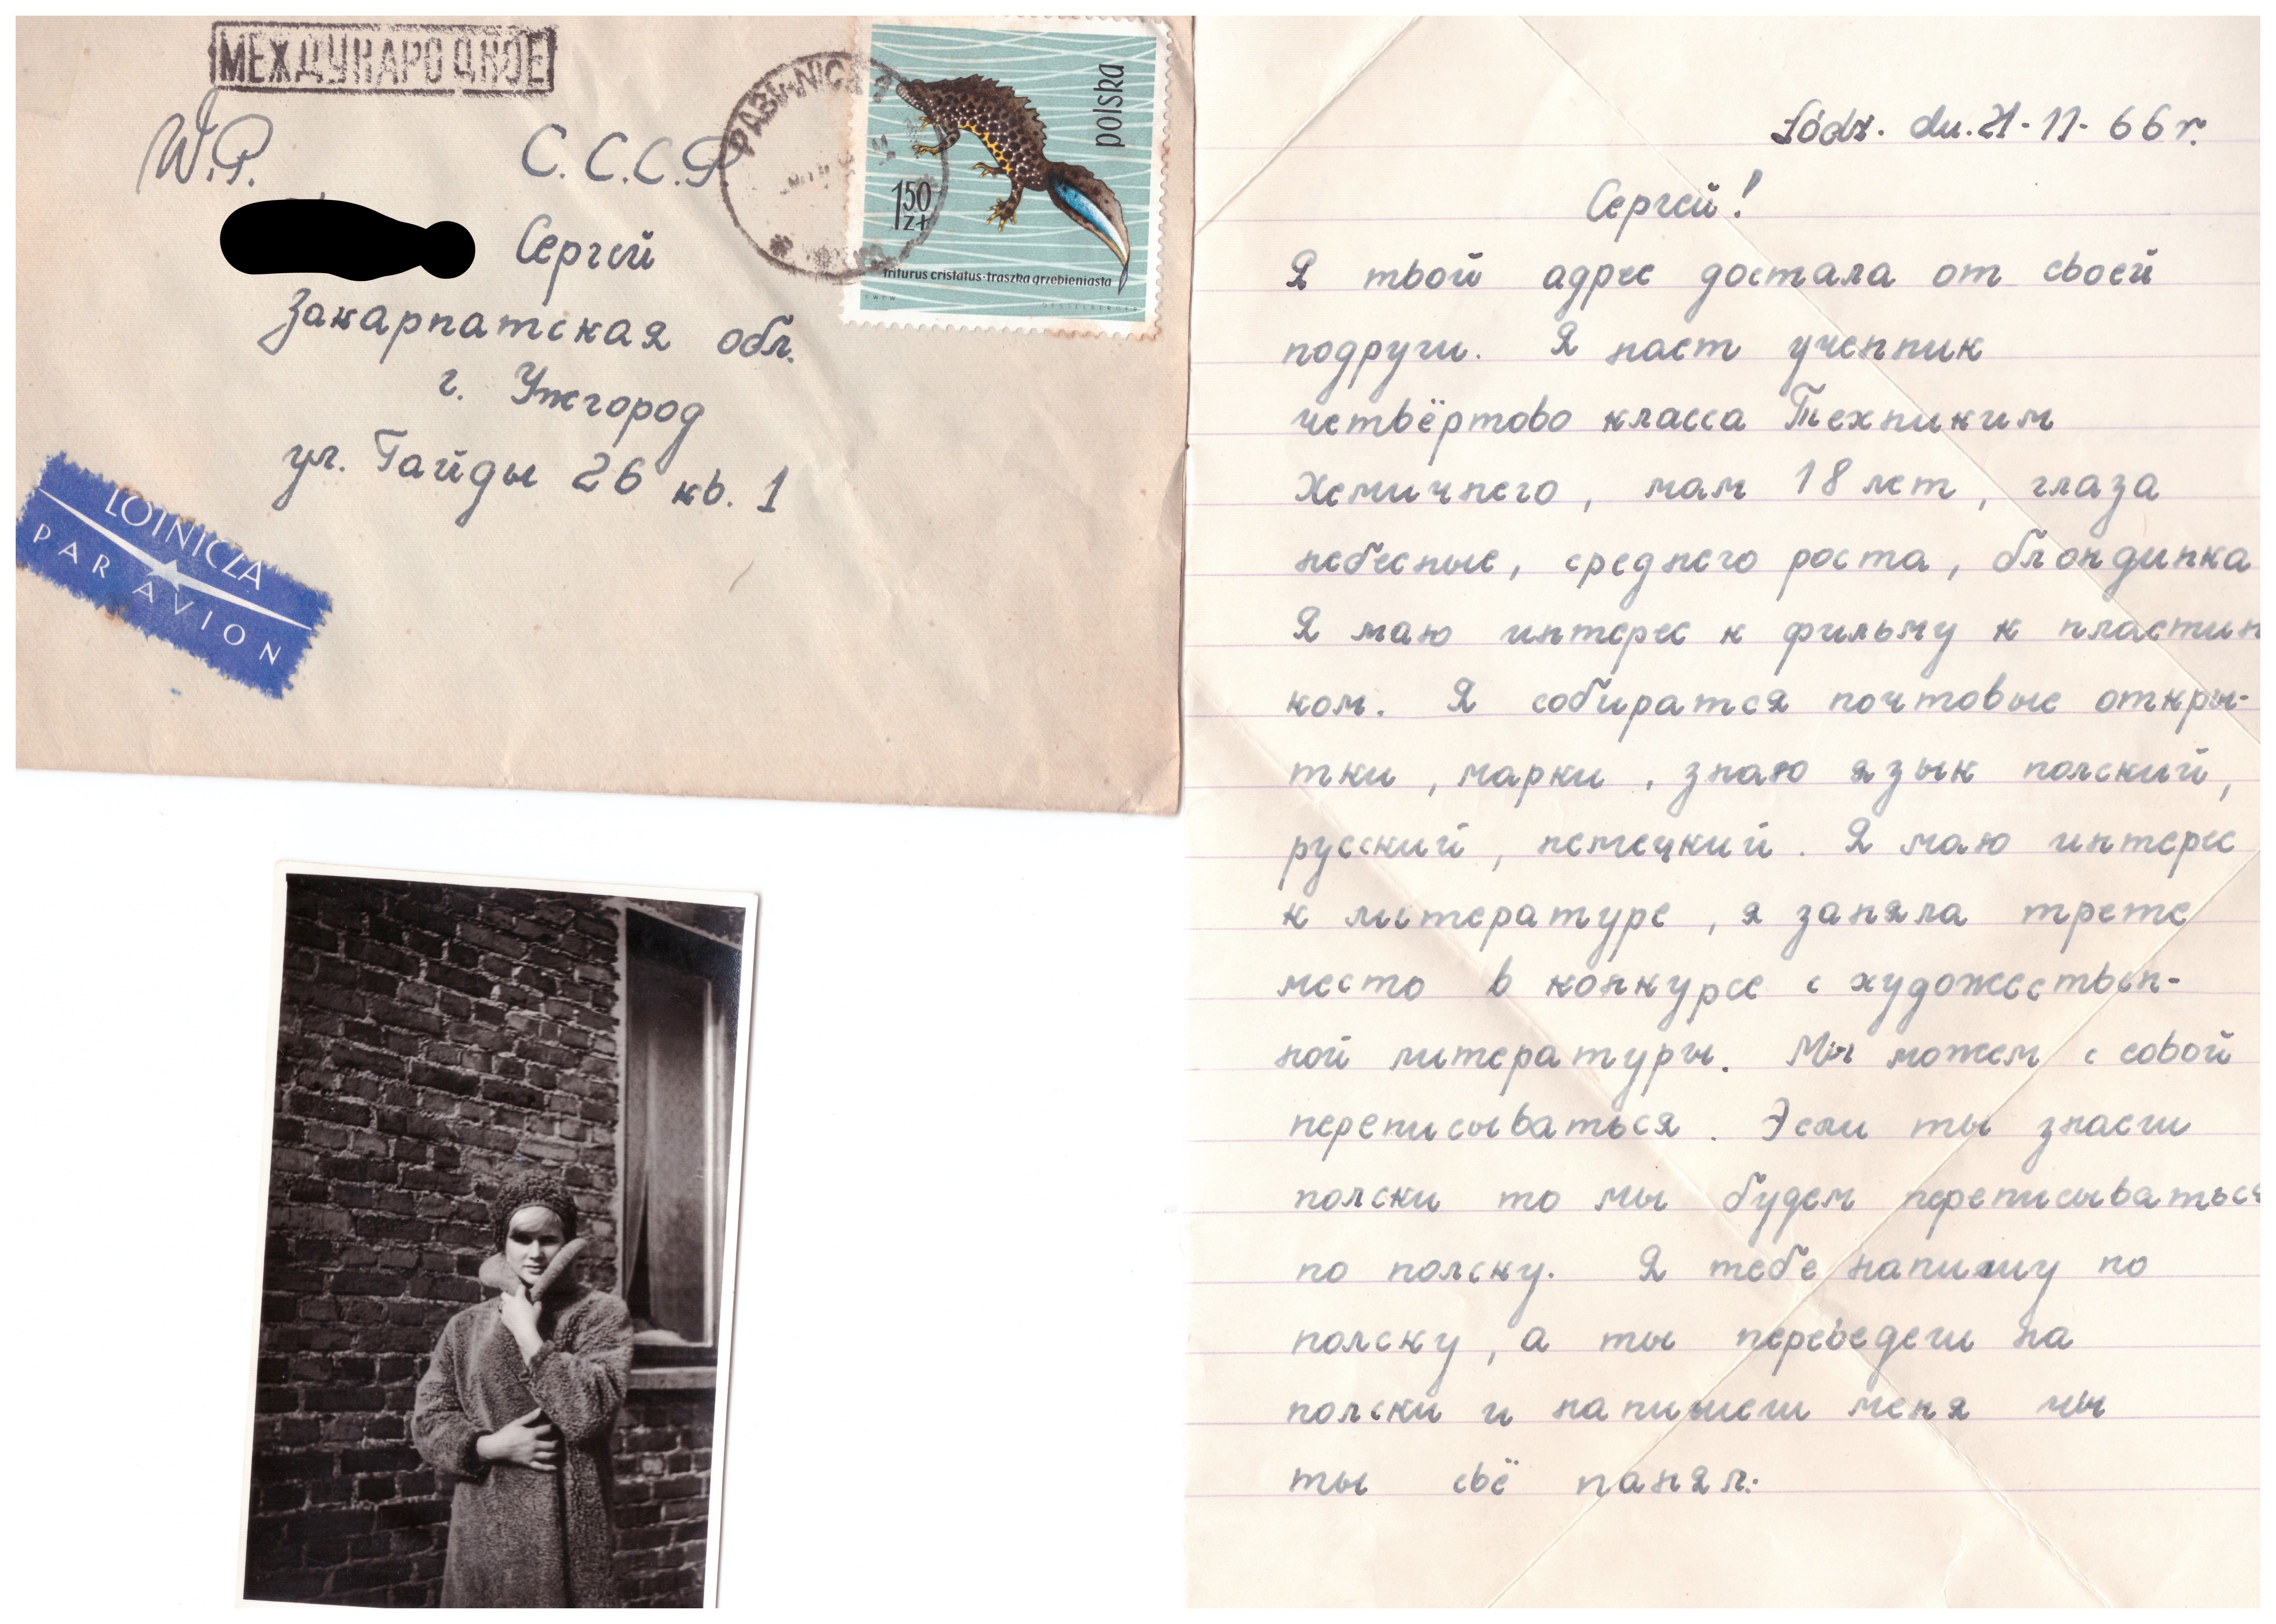 МЕЖДУНАРОДНОЕ
W.P. С.С.С.Р
Сергей
Закарпатская обл.
г. Ужгород
ул. Гайды 26 кв. 1
LOTNICZA
PAR AVION
PABIANICE
polska
150 zł
triturus cristatus·traszka grzebieniasta
Łódź. dn. 21-11-66 r.
Сергей!
Я твой адрес достала от своей
подруги. Я наст ученник
четвёртово класса Техниким
Хемичнего, мам 18 лет, глаза
небесные, среднего роста, блондинка
Я маю интерес к фильму к пластин
ком. Я собиратся почтовые откры-
тки, марки, знаю язык полский,
русский, немецкий. Я маю интерес
к литературе, я заняла трете
место в конкурсе с художествен-
ной литературы. Мы можем с собой
переписываться. Эсли ты знаеш
полски то мы будем переписываться
по полску. Я тебе напишу по
полску, а ты переведеш на
полски и напишеш меня чы
ты свё панял.